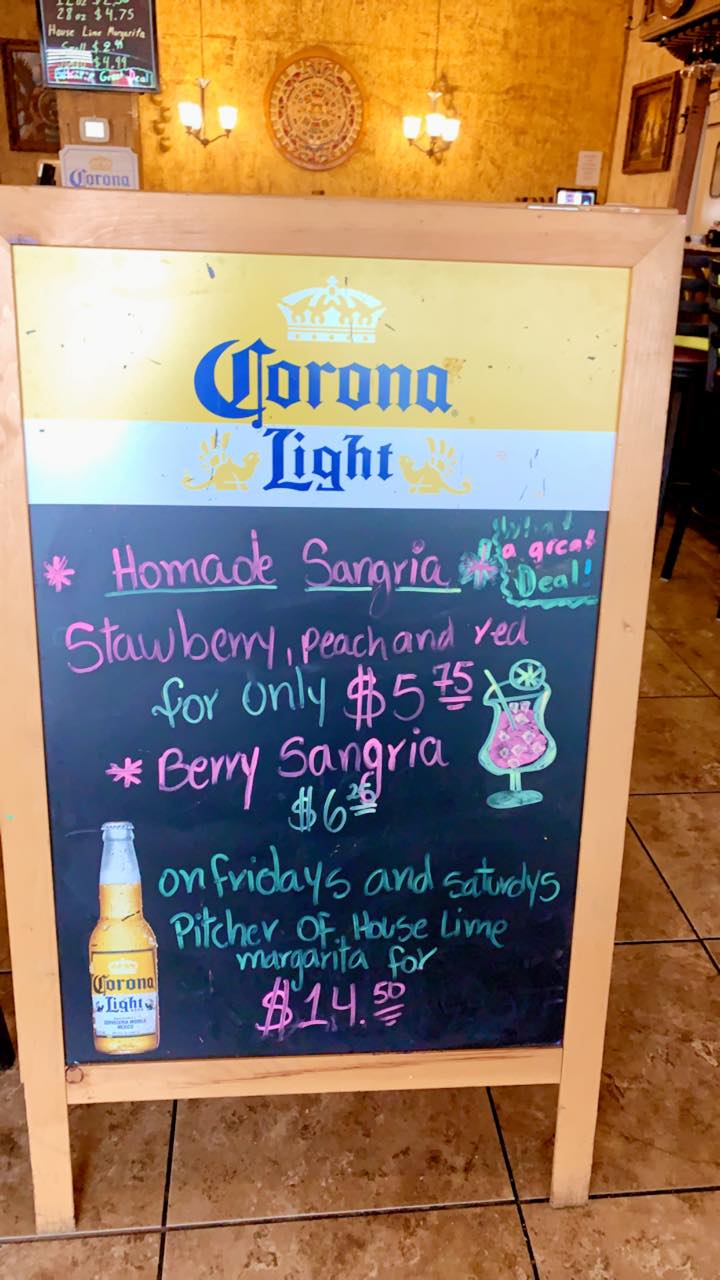 28 oz $4.75
House Lime Margarita
$4.99
Great Deal!
Corona
Corona
Light
* Homade Sangria *
What
a great
Deal!
Stawberry, peach and red
for only $5 75
* Berry Sangria
$6 25
on fridays and saturdys
Pitcher OF House Lime
margarita for
$14.50
Corona
Light